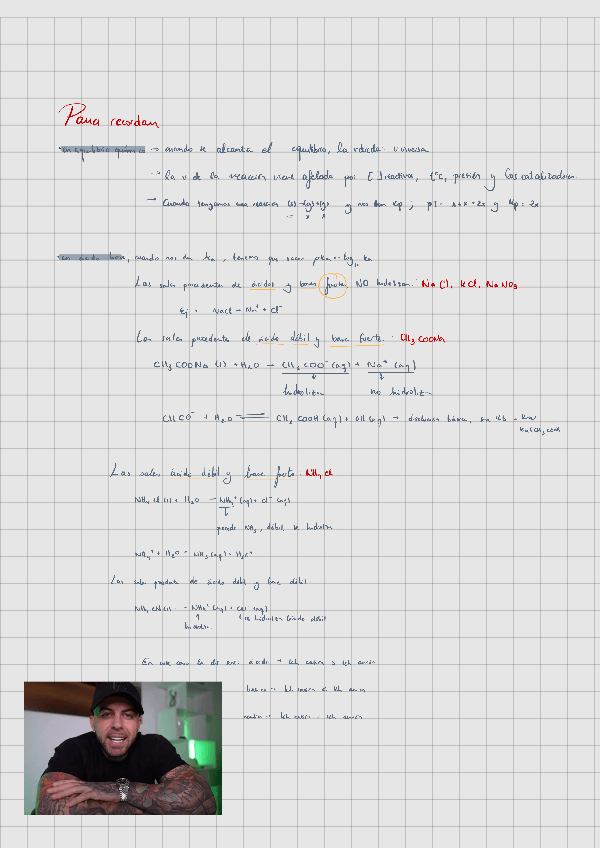 Para recordar
en equilibrio químico → cuando se alcanza el equilibrio, la velocidad
→ la v de la reacción viene afectada por [ ] reactivos, tªC, presión y los catalizadores.
→ Cuando tengamos una reacción y nos dan Kp ; PT = x+x = 2x y Kp = 2x
en ácido base, cuando nos dan ka, tenemos que sacar pka = -log ka
Las sales procedentes de ácidos y bases fuertes NO hidrolizan. NaCl, KCl, NaNO3
Ej = NaCl → Na+ + Cl-
Las sales procedente de ácido débil y base fuerte. CH3COONa
CH3COONa (s) + H2O → CH3COO- (aq) + Na+ (aq)
hidroliza no hidroliza
+ H2O CH3COOH (aq) + OH (aq) → disolución básica,
Las sales ácido débil y base fuerte. NH4Cl
NH4Cl (s) + H2O → NH4+ (aq) + Cl- (aq)
procede NH3, débil se hidroliza
NH4+ + H2O → NH3 (aq) + H3O+
Las sales de ácido débil y base débil
NH4CN (s) → NH4+ (aq) + CN- (aq)
hidroliza se hidroliza ácido débil
En este caso la dis será: ácida → Kh catión > Kh anión
básica → Kh catión < Kh anión
neutra → Kh catión = Kh anión